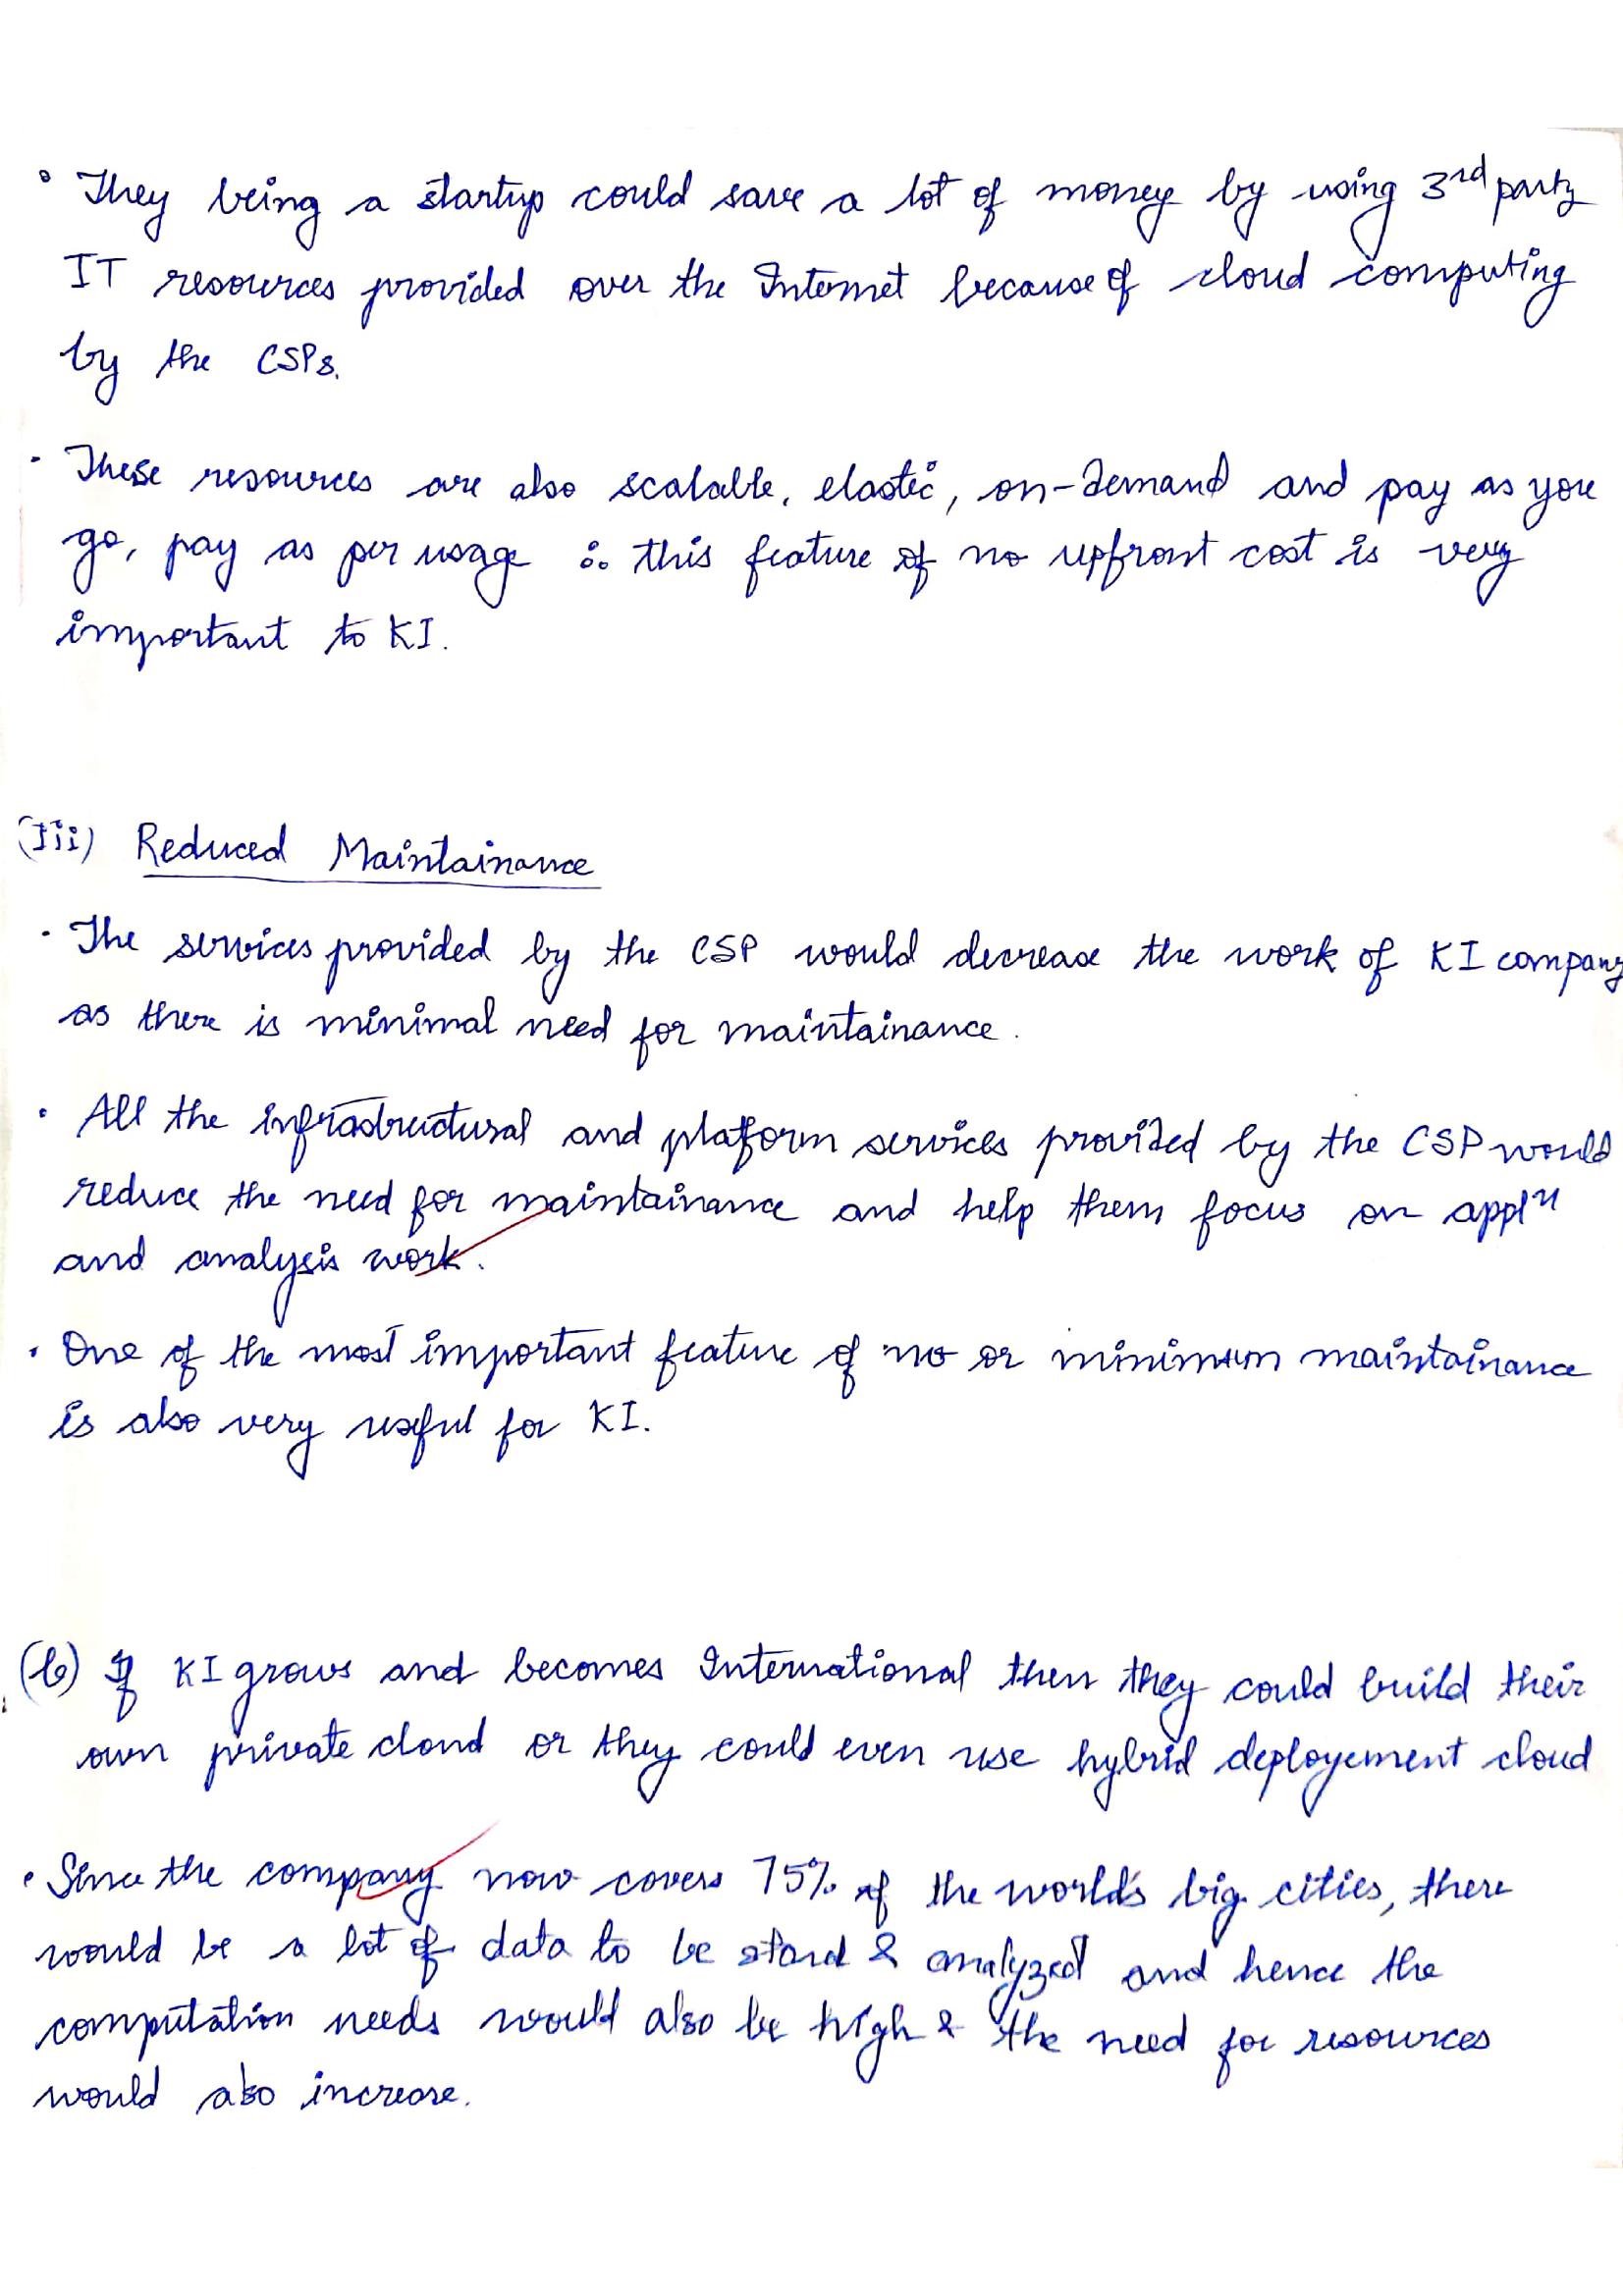 • They being a startup could save a lot of money by using 3rd party
IT resources provided over the Internet because of cloud computing
by the CSPs.
• These resources are also scalable, elastic, on-demand and pay as you
go, pay as per usage ∴ this feature of no upfront cost is very
important to KI.
(iii) Reduced Maintainance
• The services provided by the CSP would decrease the work of KI company
as there is minimal need for maintainance.
• All the infrastructural and platform services provided by the CSP would
reduce the need for maintainance and help them focus on appln
and analysis work.
• One of the most important feature of no or minimum maintainance
is also very useful for KI.
(b) If KI grows and becomes International then they could build their
own private cloud or they could even use hybrid deployement cloud
• Since the company now covers 75% of the world's big cities, there
would be a lot of data to be stored & analyzed and hence the
computation needs would also be high & the need for resources
would also increase.